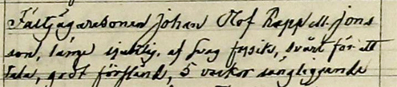 Fältjägaresonen Johan Olof Rapp el. Jons
son, länge sjuklig, af svag fysik, svårt för att
tala, godt förstånd, 5 veckor sängliggande